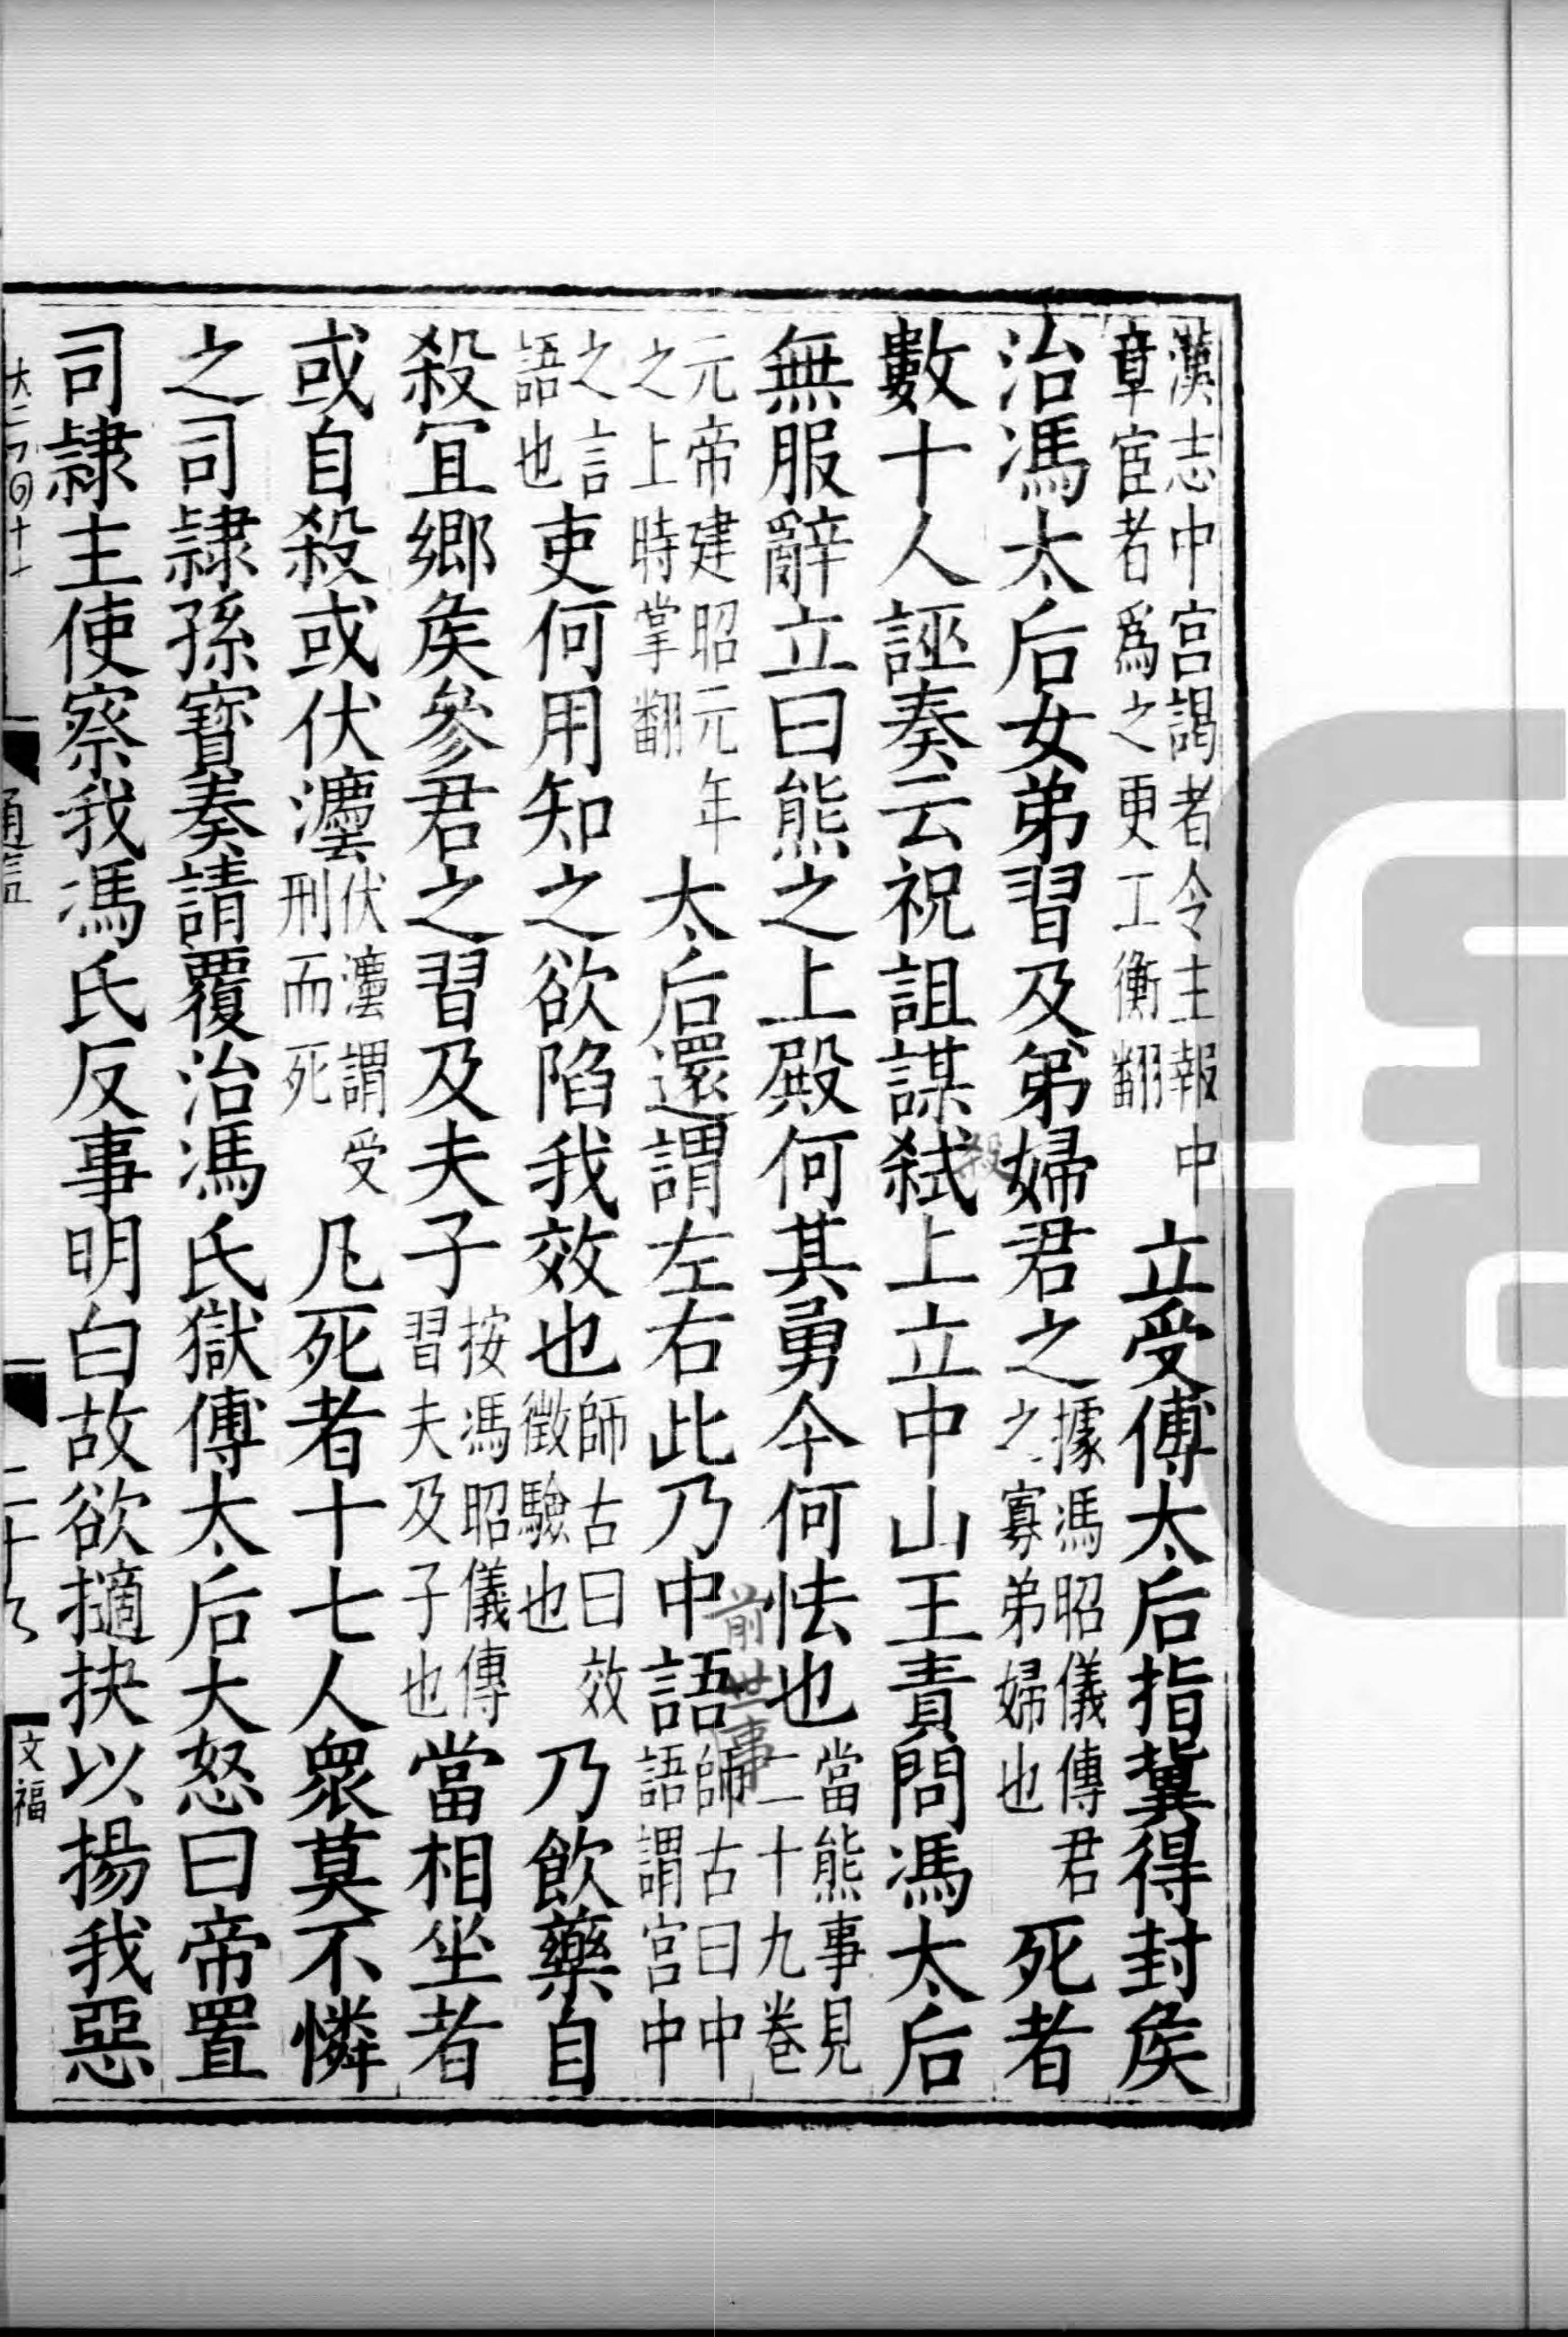 漢志中宮謁者令主報中章宦者爲之更工衡翻立受傅太后指冀得封矦
治馮太后女弟習及弟婦君之據馮昭儀傳君之寡弟婦也死者
數十人誣奏云祝詛謀弒上立中山王責問馮太后
無服辭立曰熊之上殿何其勇今何怯也當熊事見二十九卷
元帝建昭元年之上時掌翻太后還謂左右此乃中語師古曰中語謂宮中
之言語也吏何用知之欲陷我效也師古曰效徵驗也乃飲藥自
殺宜鄉矦參君之習及夫子按馮昭儀傳習夫及子也當相坐者
或自殺或伏灋伏灋謂受刑而死凡死者十七人衆莫不憐
之司隸孫寶奏請覆治馮氏獄傅太后大怒曰帝置
司隸主使察我馮氏反事明白故欲擿抉以揚我惡
殺
前世事
文福